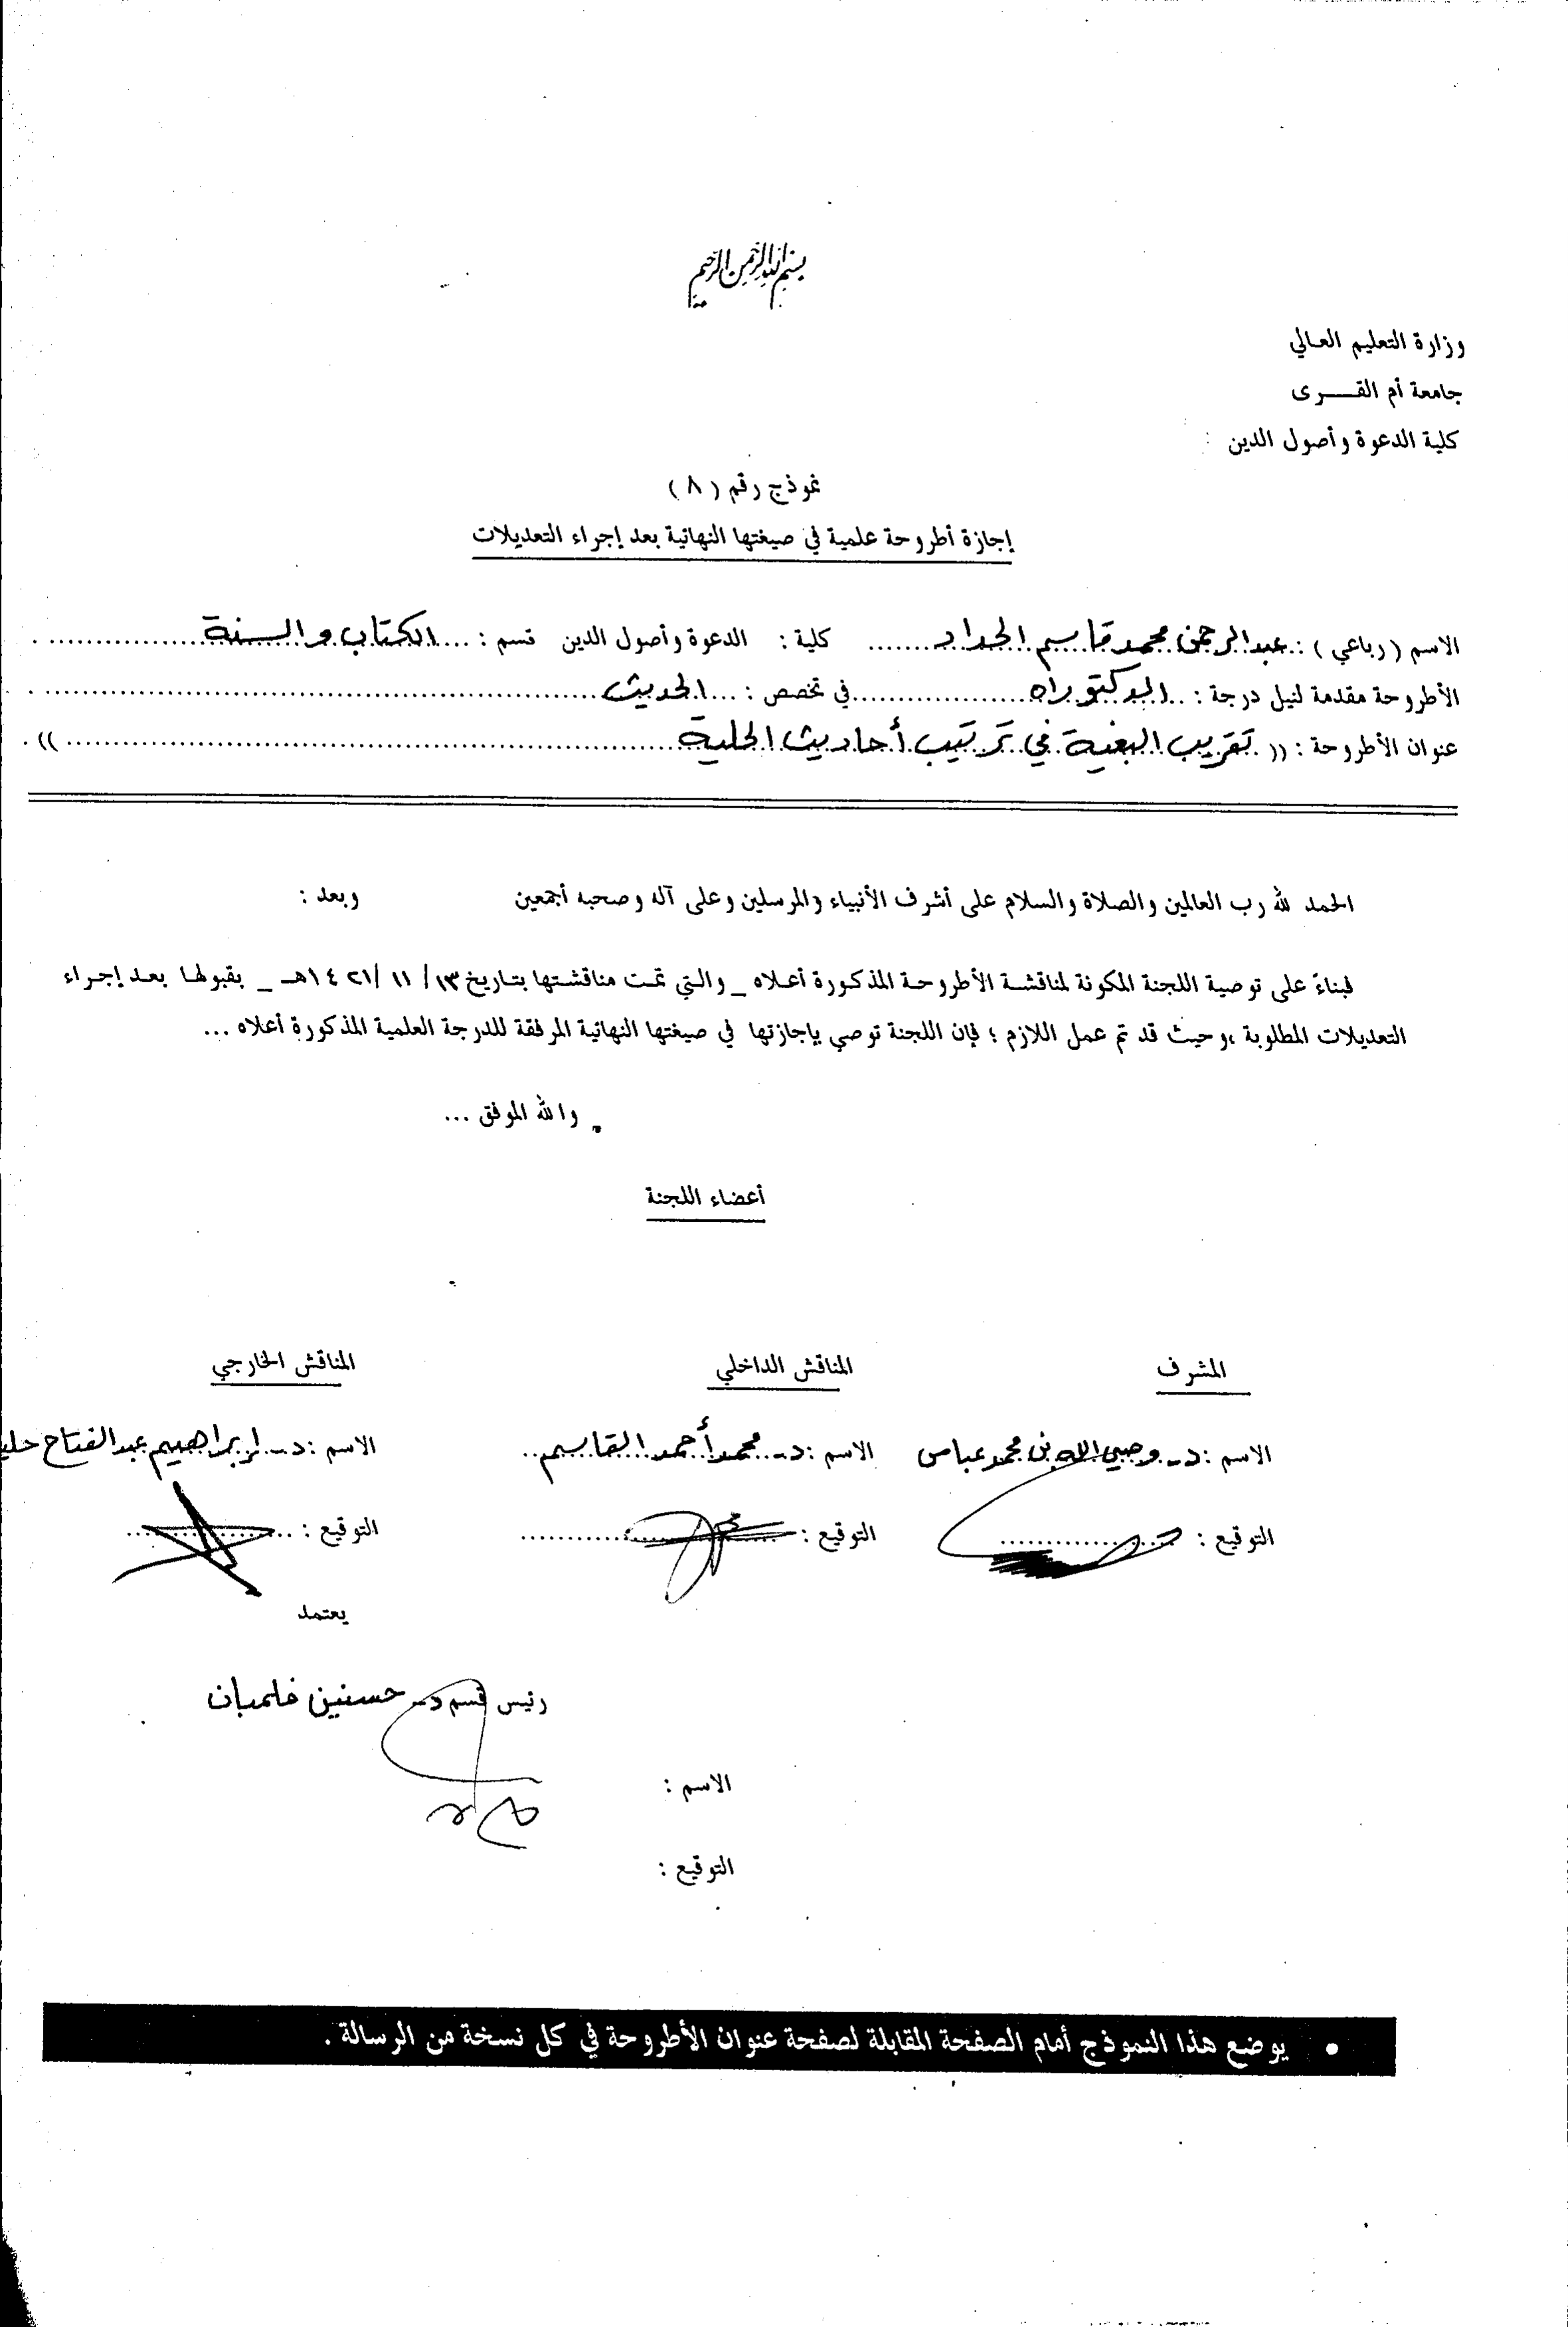 بسم الله الرحمن الرحيم
وزارة التعليم العالي
جامعة أم القــــرى
كلية الدعوة وأصول الدين :
نموذج رقم ( ٨ )
إجازة أطروحة علمية في صيغتها النهائية بعد إجراء التعديلات
الاسم ( رباعي ) : عبد الرحمن محمد قاسم الحداد كلية : الدعوة وأصول الدين قسم : الكتاب والسنة
الأطروحة مقدمة لنيل درجة : الدكتوراه في تخصص : الحديث
عنوان الأطروحة : (( تقريب البغية في ترتيب أحاديث الحلية )) .
الحمد لله رب العالمين والصلاة والسلام على أشرف الأنبياء والمرسلين وعلى آله وصحبه أجمعين وبعد :
فبناءً على توصية اللجنة المكونة لمناقشة الأطروحة المذكورة أعلاه _ والتي تمت مناقشتها بتاريخ ١٣/ ١١ /١٤٢١هـ _ بقبولها بعد إجراء
التعديلات المطلوبة ،وحيث قد تم عمل اللازم ؛ فإن اللجنة توصي بإجازتها في صيغتها النهائية المرفقة للدرجة العلمية المذكورة أعلاه ...
والله الموفق ...
أعضاء اللجنة
المشرف المناقش الداخلي المناقش الخارجي
الاسم : د- وصي الله بن محمد عباس الاسم : د- محمد أحمد القاسم الاسم : د- إبراهيم عبد الفتاح
التوقيع : التوقيع : التوقيع :
يعتمد
رئيس قسم د- حسنين فلمبان
الاسم :
التوقيع :
• يوضع هذا النموذج أمام الصفحة المقابلة لصفحة عنوان الأطروحة في كل نسخة من الرسالة .